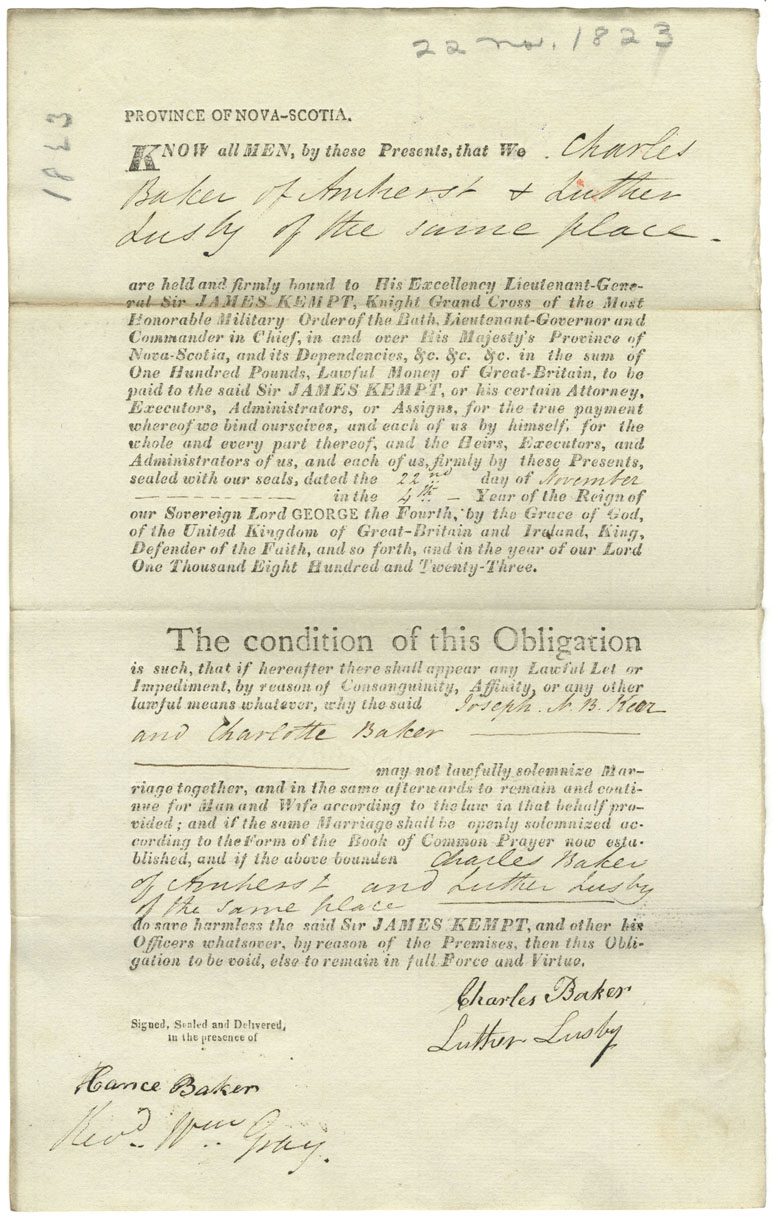 22 no. 1823
1823
PROVINCE OF NOVA-SCOTIA.
KNOW all MEN, by these Presents, that We Charles
Baker of Amherst & Luther
Lusby of the same place.
are held and firmly bound to His Excellency Lieutenant-Gene-
ral Sir JAMES KEMPT, Knight Grand Cross of the Most
Honorable Military Order of the Bath, Lieutenant-Governor and
Commander in Chief, in and over His Majesty's Province of
Nova-Scotia, and its Dependencies, &c. &c. &c. in the sum of
One Hundred Pounds, Lawful Money of Great-Britain, to be
paid to the said Sir JAMES KEMPT, or his certain Attorney,
Executors, Administrators, or Assigns, for the true payment
whereof we bind ourselves, and each of us by himself, for the
whole and every part thereof, and the Heirs, Executors, and
Administrators of us, and each of us, firmly by these Presents,
sealed with our seals, dated the 22nd day of November
in the 4th Year of the Reign of
our Sovereign Lord GEORGE the Fourth, by the Grace of God,
of the United Kingdom of Great-Britain and Ireland, King,
Defender of the Faith, and so forth, and in the year of our Lord
One Thousand Eight Hundred and Twenty-Three.
The condition of this Obligation
is such, that if hereafter there shall appear any Lawful Let or
Impediment, by reason of Consanguinity, Affinity, or any other
lawful means whatever, why the said Joseph. N. B. Kerr
and Charlotte Baker
may not lawfully solemnize Mar-
riage together, and in the same afterwards to remain and conti-
nue for Man and Wife according to the law in that behalf pro-
vided; and if the same Marriage shall be openly solemnized ac-
cording to the Form of the Book of Common Prayer now esta-
blished, and if the above bounden Charles Baker
of Amherst and Luther Lusby
of the same place
do save harmless the said Sir JAMES KEMPT, and other his
Officers whatsover, by reason of the Premises, then this Obli-
gation to be void, else to remain in full Force and Virtue.
Charles Baker
Luther Lusby
Signed, Sealed and Delivered,
in the presence of
Hance Baker
Revd. Wm. Gray.